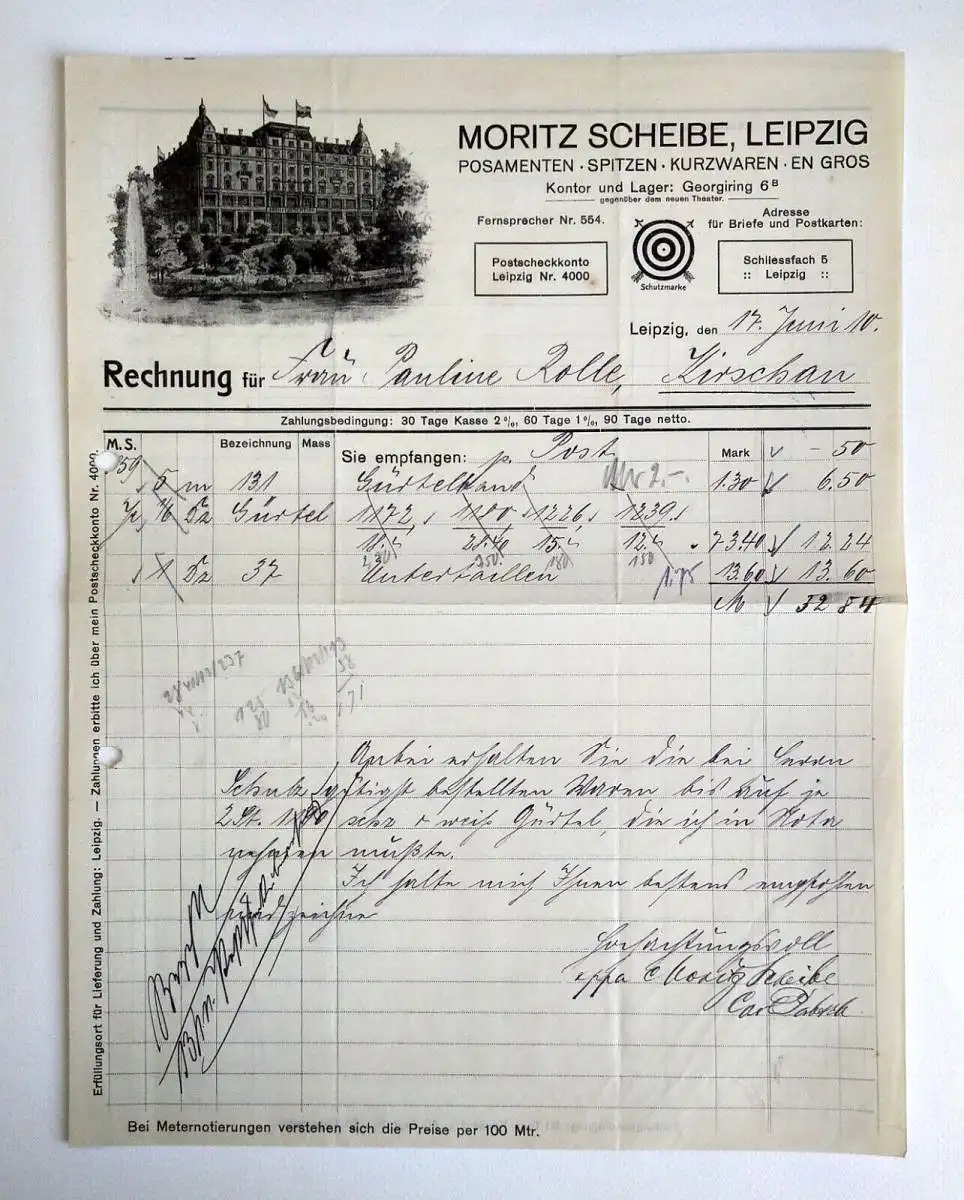 MORITZ SCHEIBE, LEIPZIG
POSAMENTEN · SPITZEN · KURZWAREN · EN GROS
Kontor und Lager: Georgiring 6B
gegenüber dem neuen Theater.
Fernsprecher Nr. 554.
Postscheckkonto
Leipzig Nr. 4000
Schutzmarke
Adresse
für Briefe und Postkarten:
Schliessfach 5
:: Leipzig ::
Leipzig, den 17. Juni 10.
Rechnung für Frau Pauline Rolle, Kirschau
Zahlungsbedingung: 30 Tage Kasse 2%, 60 Tage 1%, 90 Tage netto.
M.S. Bezeichnung Mass Sie empfangen: p. Post Mark - 50
5 m 131 Gürtelband 1.30 6.50
1/6 Dz Gürtel 1172, 1180 1226, 1239
15.- 12.- 73.40 12.24
1 Dz 37 Untertaillen 13.60 13.60
350. 180 150 1.75
M 32 84
Anbei erhalten Sie die bei Herrn
Schulz gütigst bestellten Waren bis auf je
2 St. schw. & weiß Gürtel, die ich in Nota
nehmen mußte.
Ich halte mich Ihnen bestens empfohlen
und zeichne
Hochachtungsvoll
ppa Moritz Scheibe
Erfüllungsort für Lieferung und Zahlung: Leipzig. — Zahlungen erbitte ich über mein Postscheckkonto Nr. 4000.
Bei Meternotierungen verstehen sich die Preise per 100 Mtr.